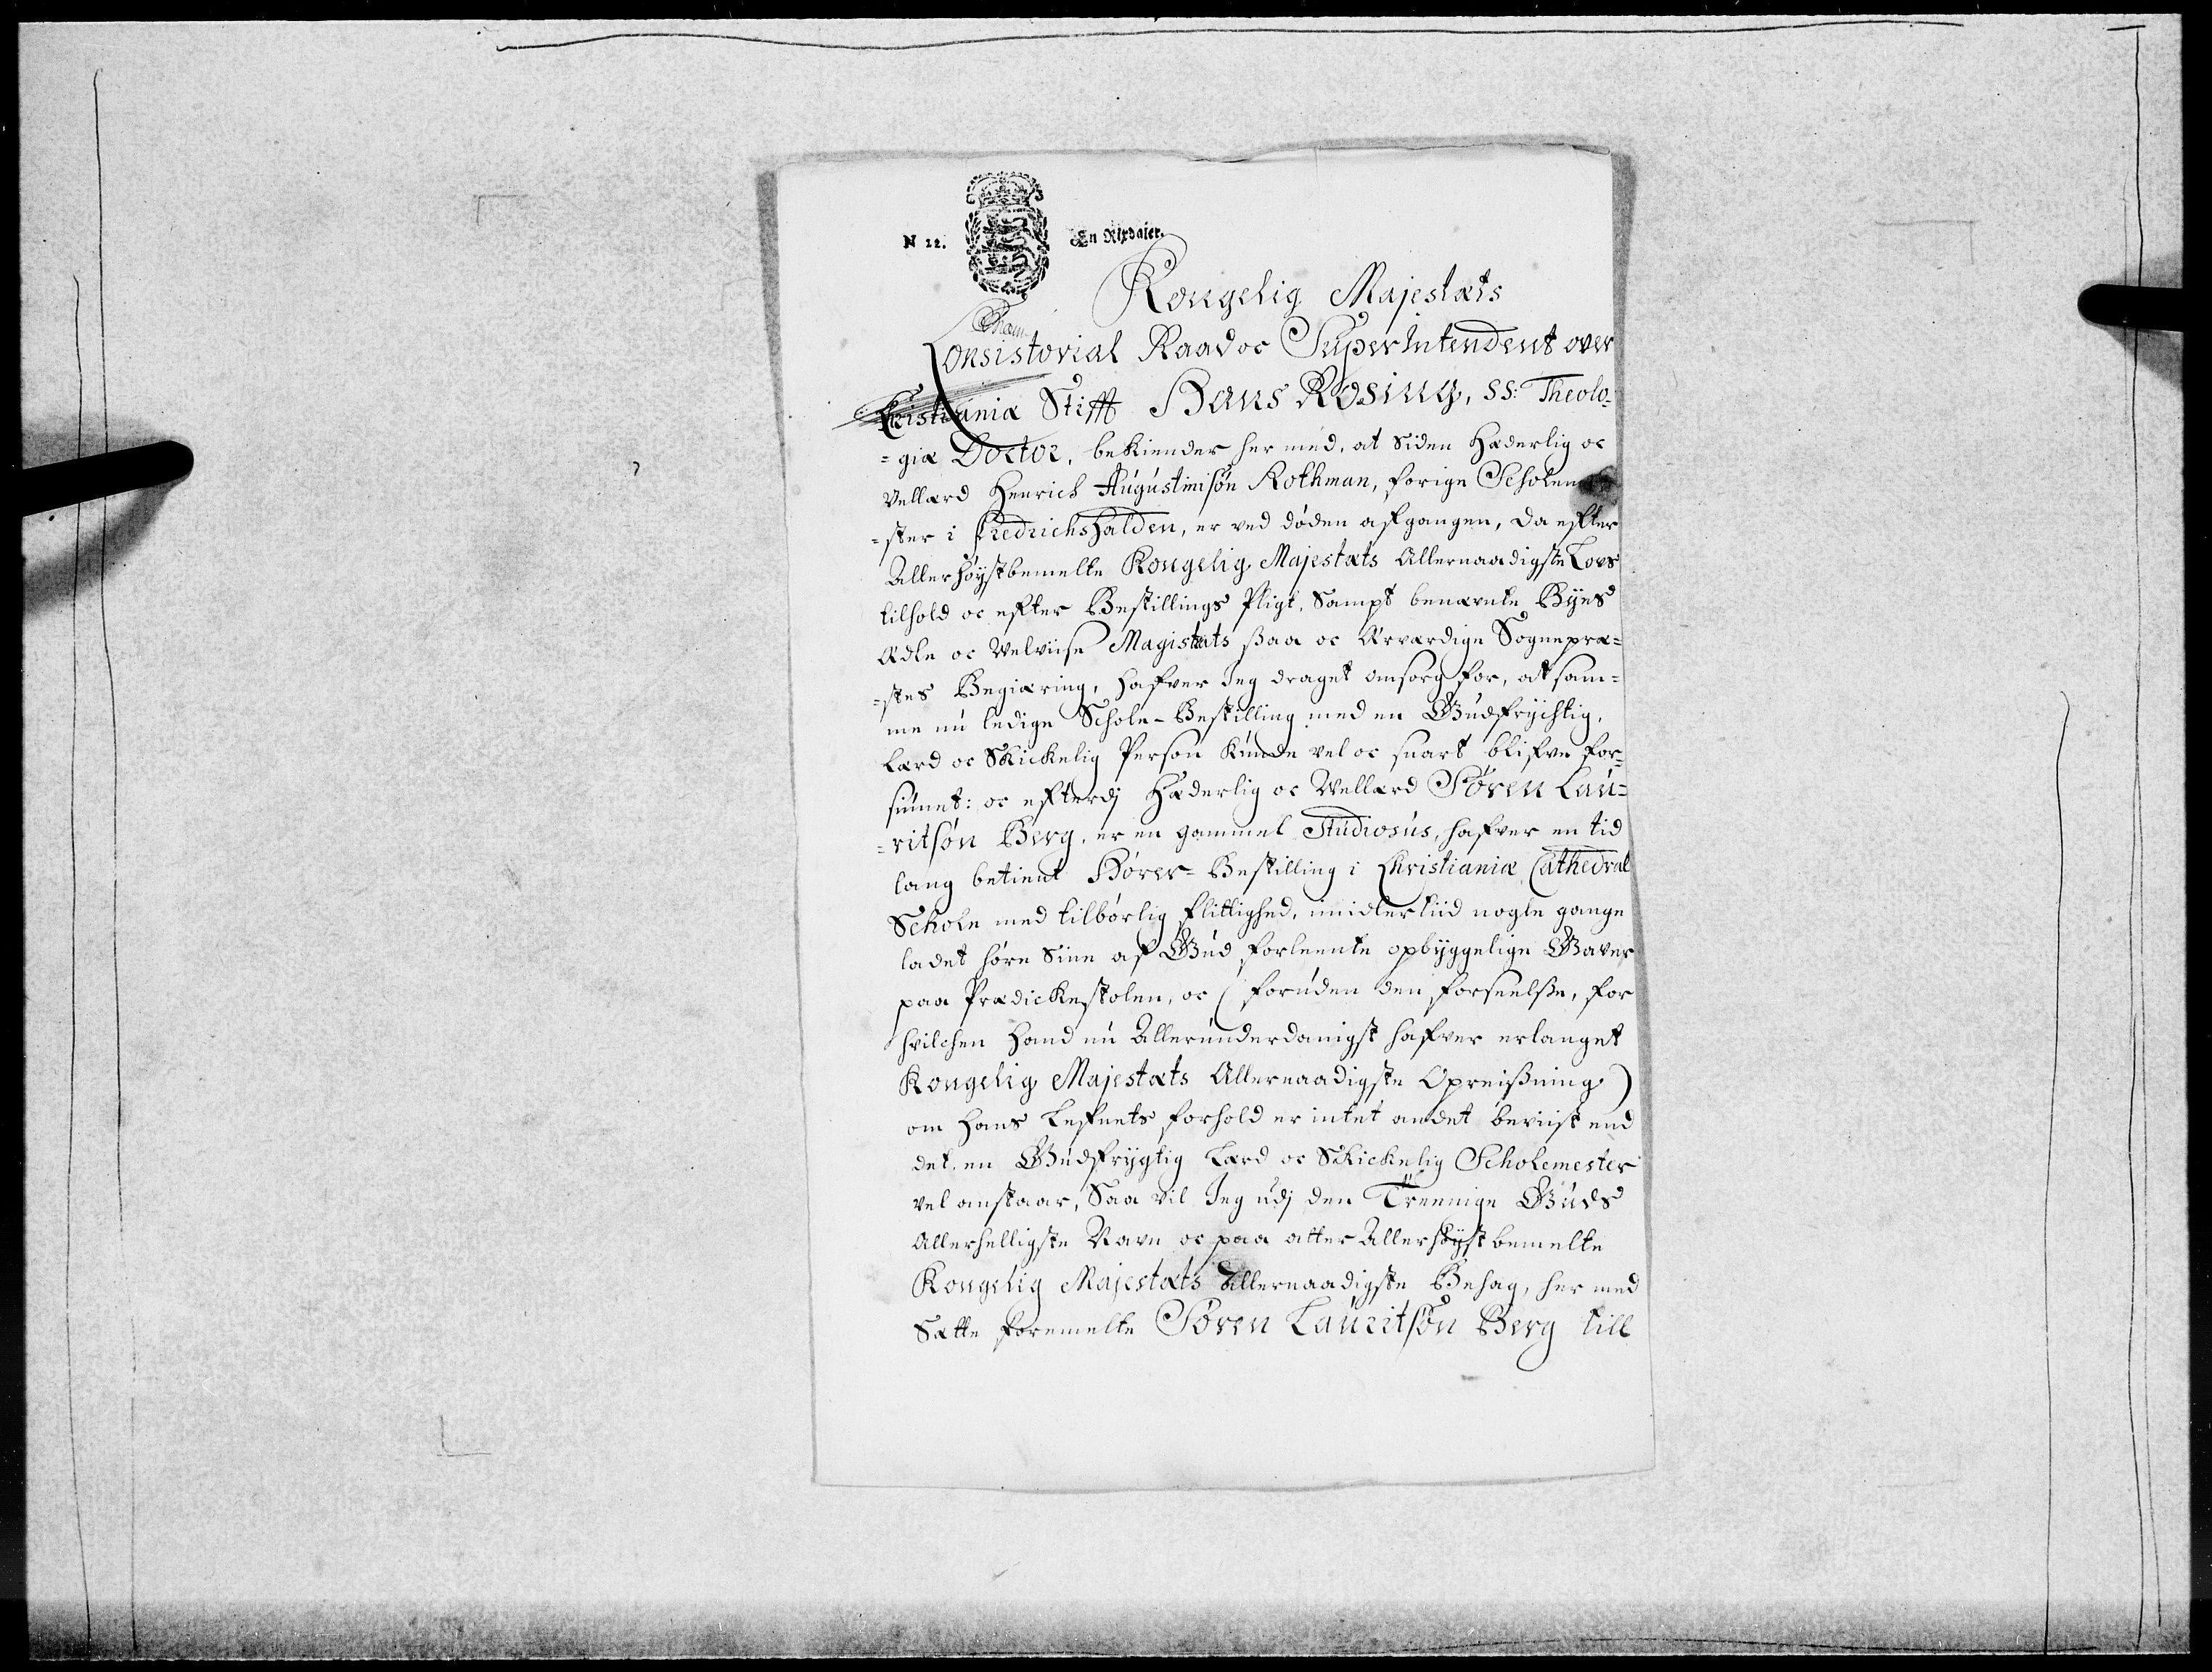 N 22. En Rixdaler.
Kongelig Majestæts
Consistorial Raad oc Superintendent over
Christianiæ Stifft Hans Rosing, SS: Theolo-
=giæ Doctor, bekiender her med, at siden Hæderlig oc
Vellærd Henrich Augustinisøn Rothman, forige Scholeme
=ster i Fredrichshalden, er ved døden afgangen, da effter
Allerhøystbemelte Kongelig Majestæts Allernaadigste Lovs
tilhold oc effter Bestillings Pligt, Sampt benævnte Byes
Ædle oc Velviise Magistrats saa oc Ærværdige Sognepræ=
=stes Begiæring, hafver Jeg draget omsorg for, at sam=
me nu ledige Schole-Bestilling med en Gudfrychtig,
Lærd oc Skickelig Person kunde vel oc snart blifve for=
siunet: oc efterdj Hæderlig oc Wellærd Søren Lau=
=ritsøn Berg, er en gammel Studiosus, hafver en tid
lang betient Hører-Bestilling i Christianiæ Cathedral
Schole med tilbørlig flittighed, imidlertiid nogle gange
ladet høre sine af Gud forleente opbyggelige Gaver
paa Prædickestolen, oc (foruden den forseelse, for
hvilchen Hand nu Allerunderdanigst hafver erlanget
Kongelig Majestæts Allernaadigste Opreisning)
om Hans Lefnets forhold er intet andet beviist end
det, en Gudfrygtig Lærd oc Skickelig Scholemester
vel anstaar, Saa vil Jeg udj den Treenige Guds
Allerhelligste Navn oc paa atter Allerhøystbemelte
Kongelig Majestæts Allernaadigste Behag, her med
Sætte foremelte Søren Lauritsøn Berg till